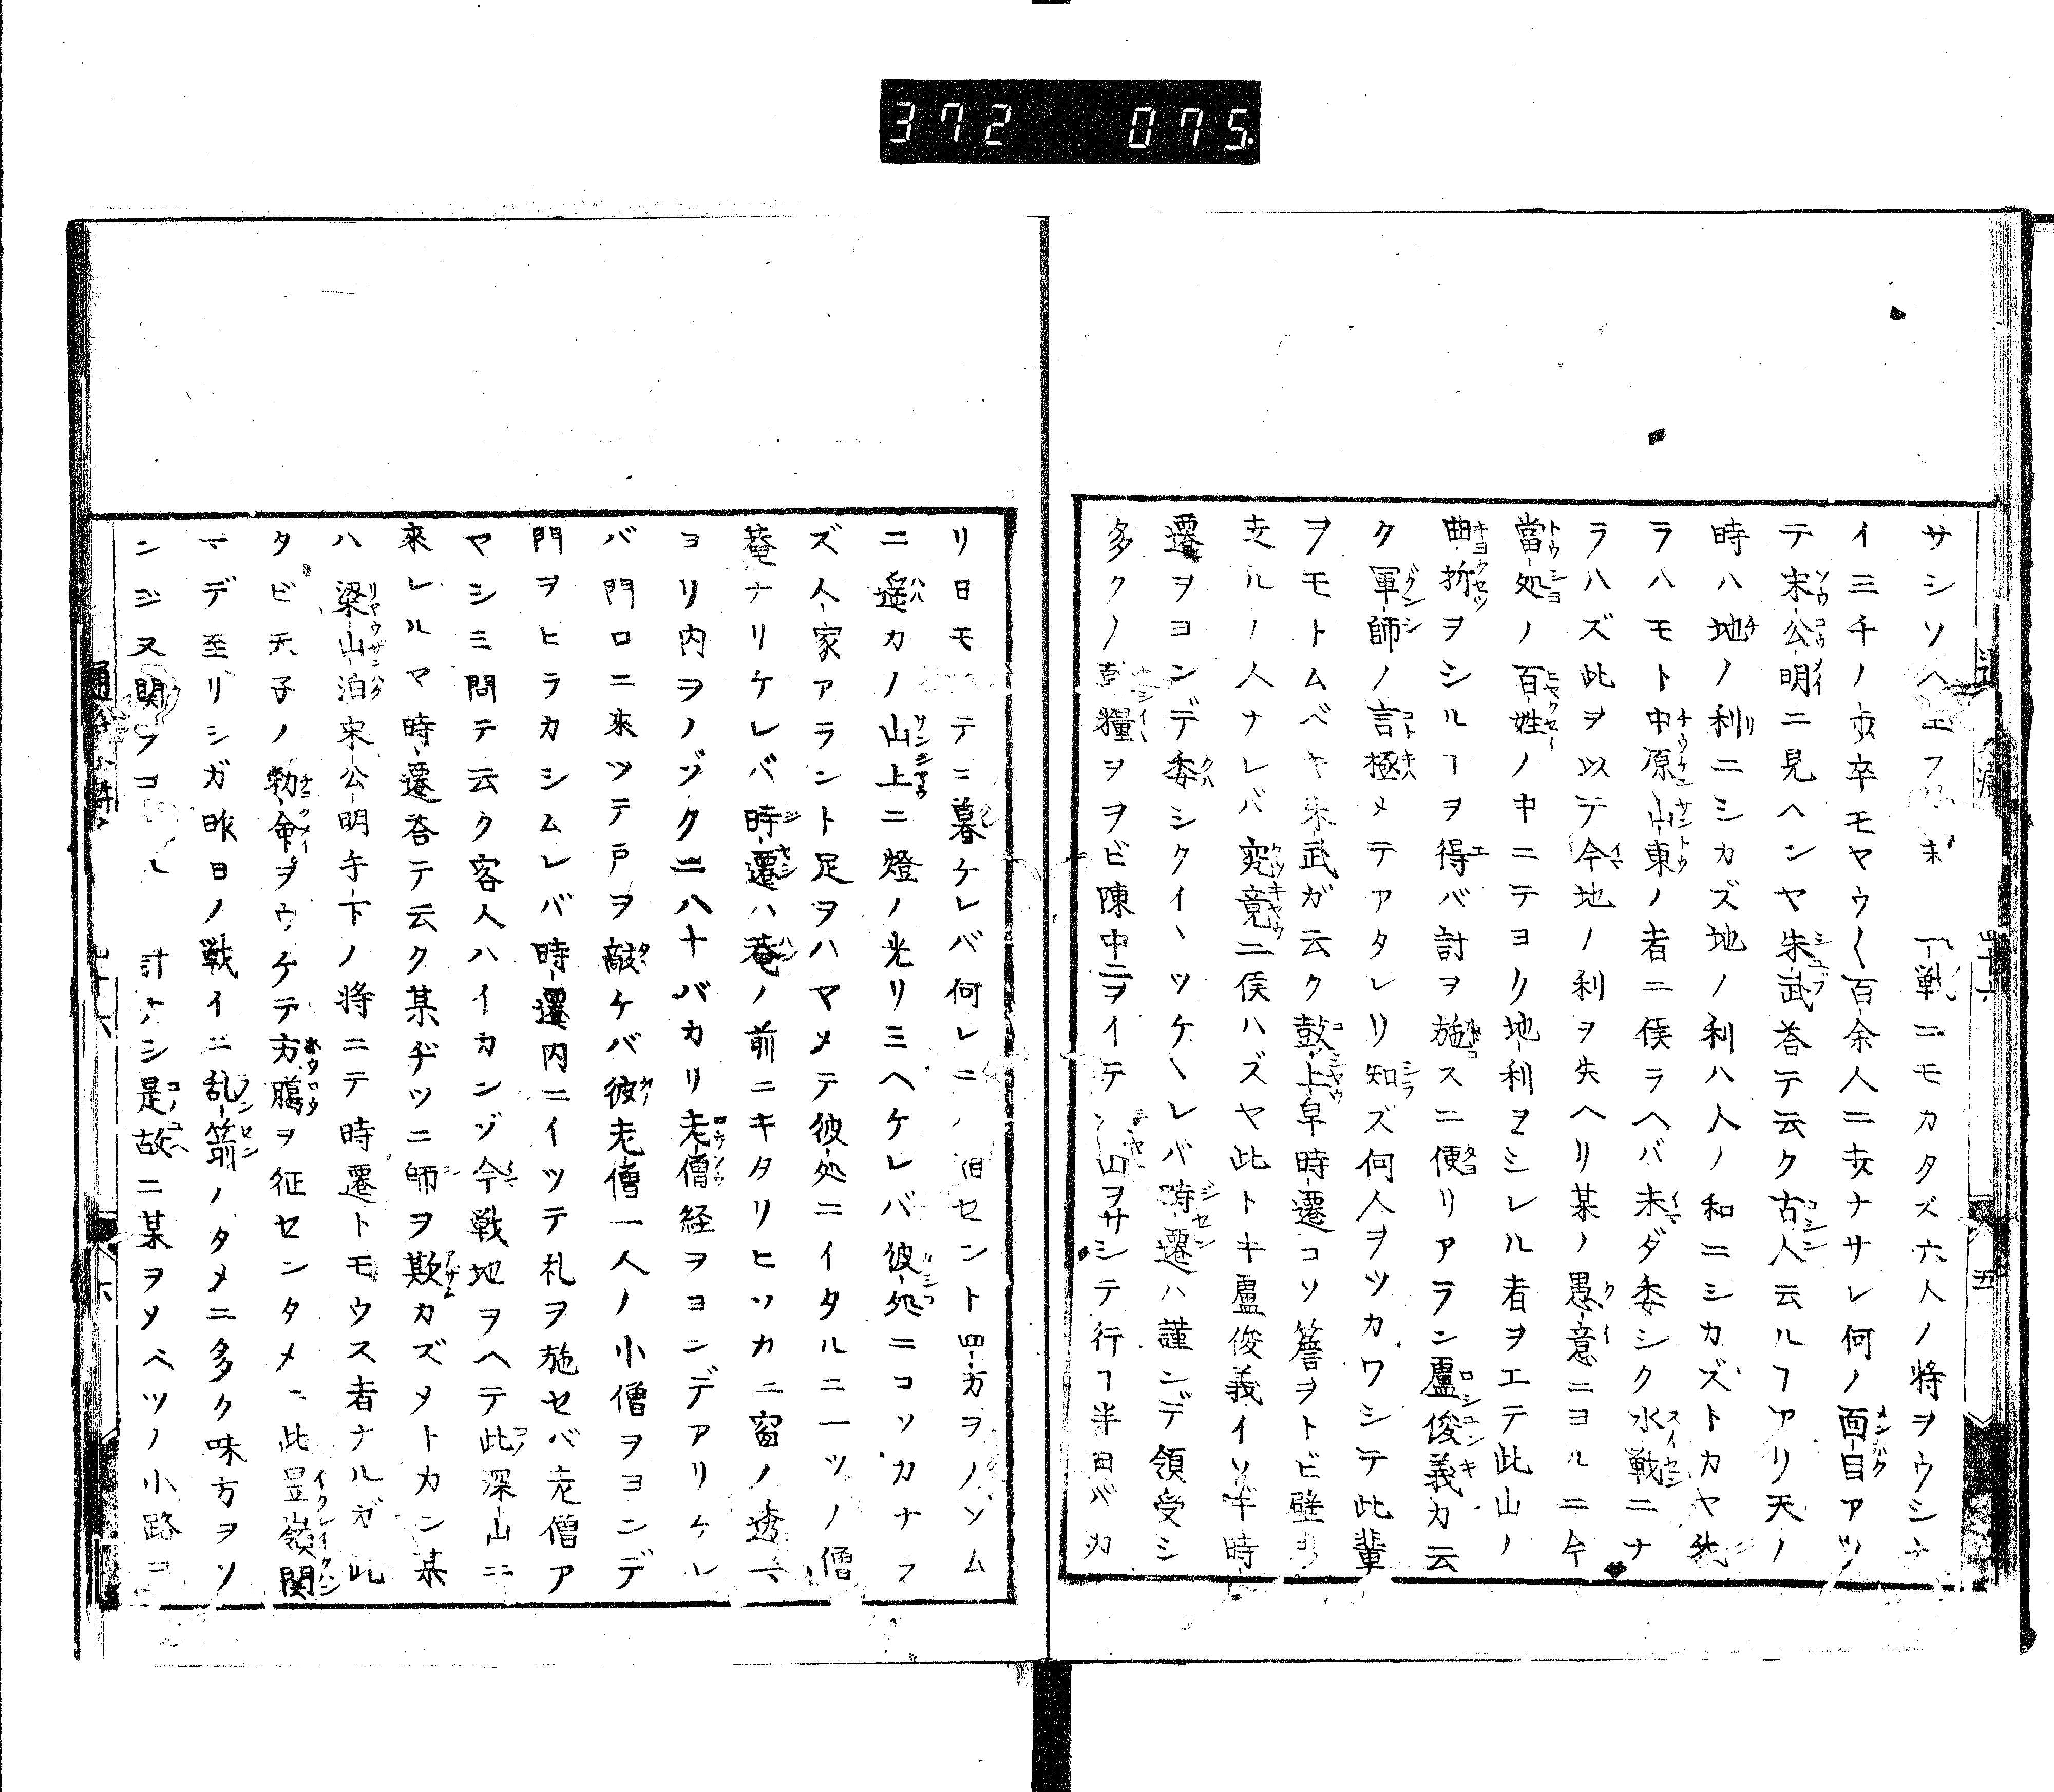 372 075
サシソヘ
戦ニモカタズ六人ノ将ヲウシナ
イ三千ノ歩卒モヤウ〱百余人ニ歩ナサレ何ノ面目アツ
テ宋公明ニ見ヘンヤ朱武荅テ云ク古人云ルヿアリ天ノ
時ハ地ノ利ニシカズ地ノ利ハ人ノ和ニシカズトカヤ我
ラハモト中原山東ノ者ニ候ラヘバ未ダ委シク水戦ニナ
ラハズ此ヲ以テ今地ノ利ヲ失ヘリ某ノ愚意ニヨルニ今
當処ノ百姓ノ中ニテヨク地利ヲシレル者ヲエテ此山ノ
曲折ヲシルヿヲ得バ計ヲ施スニ便リアラン盧俊義カ云
ク軍師ノ言極メテアタレリ知ズ何人ヲツカワシテ此輩
ヲモトムベキ朱武ガ云ク鼓上皐時遷コソ簷ヲトビ壁ヲ
走ルノ人ナレバ究竟ニ候ハズヤ此トキ盧俊義イソギ時
遷ヲヨンデ委シクイヽツケヽレバ時遷ハ謹ンデ領受シ
多クノ乾糧ヲヲビ陳中ニヲイテ
山ヲサシテ行ヿ半日バカ
リ日モ
テニ暮ケレバ何レニ
泊セント四方ヲノゾム
ニ遥カノ山上ニ燈ノ光リミヘケレバ彼処ニコソカナラ
ズ人家アラント足ヲハヤメテ彼処ニイタルニ一ツノ僧
菴ナリケレバ時遷ハ菴ノ前ニキタリヒソカニ窗ノ透マ
ヨリ内ヲノゾクニ八十バカリ老僧経ヲヨンデアリケレ
バ門口ニ来ツテ戸ヲ敲ケバ彼老僧一人ノ小僧ヲヨンデ
門ヲヒラカシムレバ時遷内ニイツテ礼ヲ施セバ老僧ア
ヤシミ問テ云ク客人ハイカンゾ今戦地ヲヘテ此深山ニ
來レルヤ時遷荅テ云ク某ヂツニ師ヲ欺カズメトカン某
ハ梁山泊宋公明手下ノ将ニテ時遷トモウス者ナルガ此
タビ天子ノ勅命ヲウケテ方臈ヲ征センタメニ此昱嶺関
マデ至リシガ昨日ノ戦イニ乱箭ノタメニ多ク味方ヲソ
ンジ又関ヲコ
計ナシ是故ニ某ヲメヘツノ小路ヲ